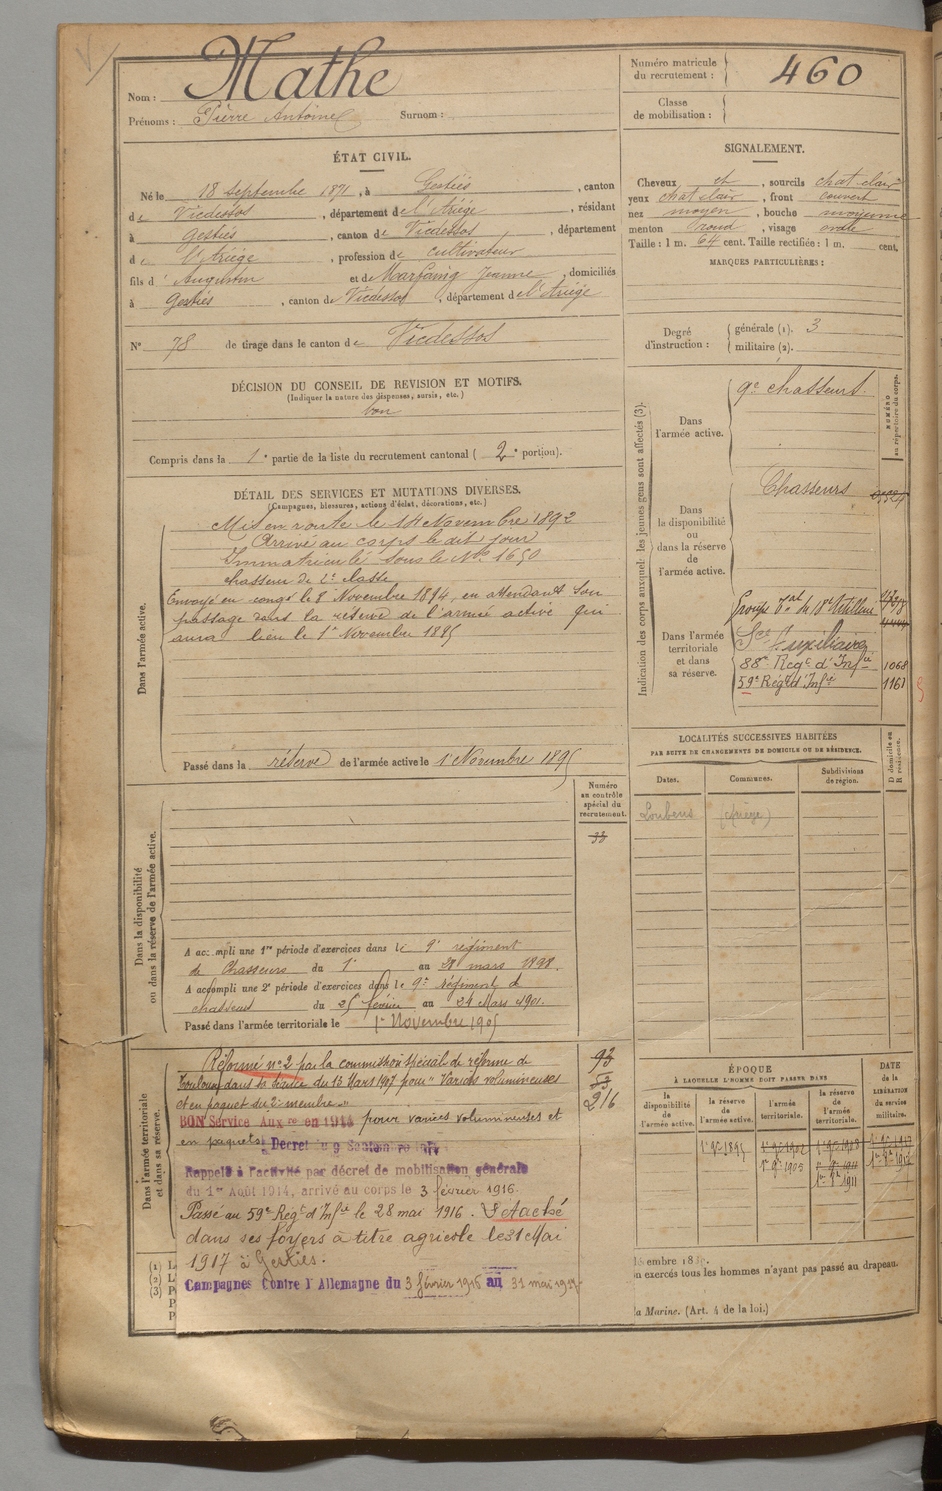 Nom : Mathe
Prénoms : Pierre Antoine Surnom :
Numéro matricule du recrutement : 460
Classe de mobilisation :
ÉTAT CIVIL.
Né le 18 Septembre 1871, à Gestiès, canton
de Vicdessos, département de l'Ariège, résidant
à Gestiès, canton de Vicdessos, département
de l'Ariège, profession de cultivateur
fils d' Augustin et de Jeanne, domiciliés
à Gestiès, canton de Vicdessos, département de l'Ariège
N° 78 de tirage dans le canton de Vicdessos
SIGNALEMENT.
Cheveux et, sourcils chat clair
yeux chat clair, front couvert
nez moyen, bouche moyenne
menton rond, visage ovale
Taille : 1 m. 64 cent. Taille rectifiée : 1 m. cent.
MARQUES PARTICULIÈRES :
Degré d'instruction : générale (1). 3
militaire (2).
DÉCISION DU CONSEIL DE REVISION ET MOTIFS.
(Indiquer la nature des dispenses, sursis, etc.)
bon
Compris dans la 1e partie de la liste du recrutement cantonal (2e portion).
DÉTAIL DES SERVICES ET MUTATIONS DIVERSES.
(Campagnes, blessures, actions d'éclat, décorations, etc.)
Dans l'armée active.
Mis en route le 14 Novembre 1892
Arrivé au corps le dit jour
Immatriculé sous le No 1650
chasseur de 2e classe
Envoyé en congé le 8 Novembre 1894, en attendant son
passage dans la réserve de l'armée active qui
aura lieu le 1er Novembre 1895
Passé dans la réserve de l'armée active le 1er Novembre 1895
Indication des corps auxquels les jeunes gens sont affectés (3).
NUMÉRO au répertoire du corps.
Dans l'armée active.
9e chasseurs.
Dans la disponibilité ou dans la réserve de l'armée active.
Chasseurs
Dans l'armée territoriale et dans sa réserve.
Sce Auxiliaire
88e Régt d'Infie 1068
59e Régt d'Infie 1161
LOCALITÉS SUCCESSIVES HABITÉES
PAR SUITE DE CHANGEMENTS DE DOMICILE OU DE RÉSIDENCE.
Dates.
Communes.
Subdivisions de région.
D domicile ou R résidence.
Loubens (Ariège)
Numéro au contrôle spécial du recrutement.
Dans la disponibilité ou dans la réserve de l'armée active.
A accompli une 1re période d'exercices dans le 9e régiment
de Chasseurs du 1er au 28 mars 1898.
A accompli une 2e période d'exercices dans le 9e régiment de
chasseurs du 25 février au 24 Mars 1901.
Passé dans l'armée territoriale le 1er Novembre 1905
Dans l'armée territoriale et dans sa réserve.
93
53
216
Réformé n° 2 par la commission spéciale de réforme de
Toulouse dans sa séance du 13 Mars 1907 pour "Varices volumineuses
et en paquet du 2e membre"
BON Service Auxre en 1914 pour varices volumineuses et
en paquets. Décret du 9 Septembre 1914
Rappelé à l'activité par décret de mobilisation générale
du 1er Août 1914, arrivé au corps le 3 février 1916.
Passé au 59e Régt d'Infie le 28 mai 1916. Détaché
dans ses foyers à titre agricole le 31 Mai
1917 à Gestiès.
Campagnes Contre l'Allemagne du 3 février 1916 au 31 mai 1917
ÉPOQUE
À LAQUELLE L'HOMME DOIT PASSER DANS
la disponibilité de l'armée active.
la réserve de l'armée active.
l'armée territoriale.
la réserve de l'armée territoriale.
DATE de la LIBÉRATION du service militaire.
1er 9e 1895
1er 9e 1905
1er 8e 1911
(1) L
(2) L
(3) P
P
P
on exercés tous les hommes n'ayant pas passé au drapeau.
la Marine. (Art. 4 de la loi.)